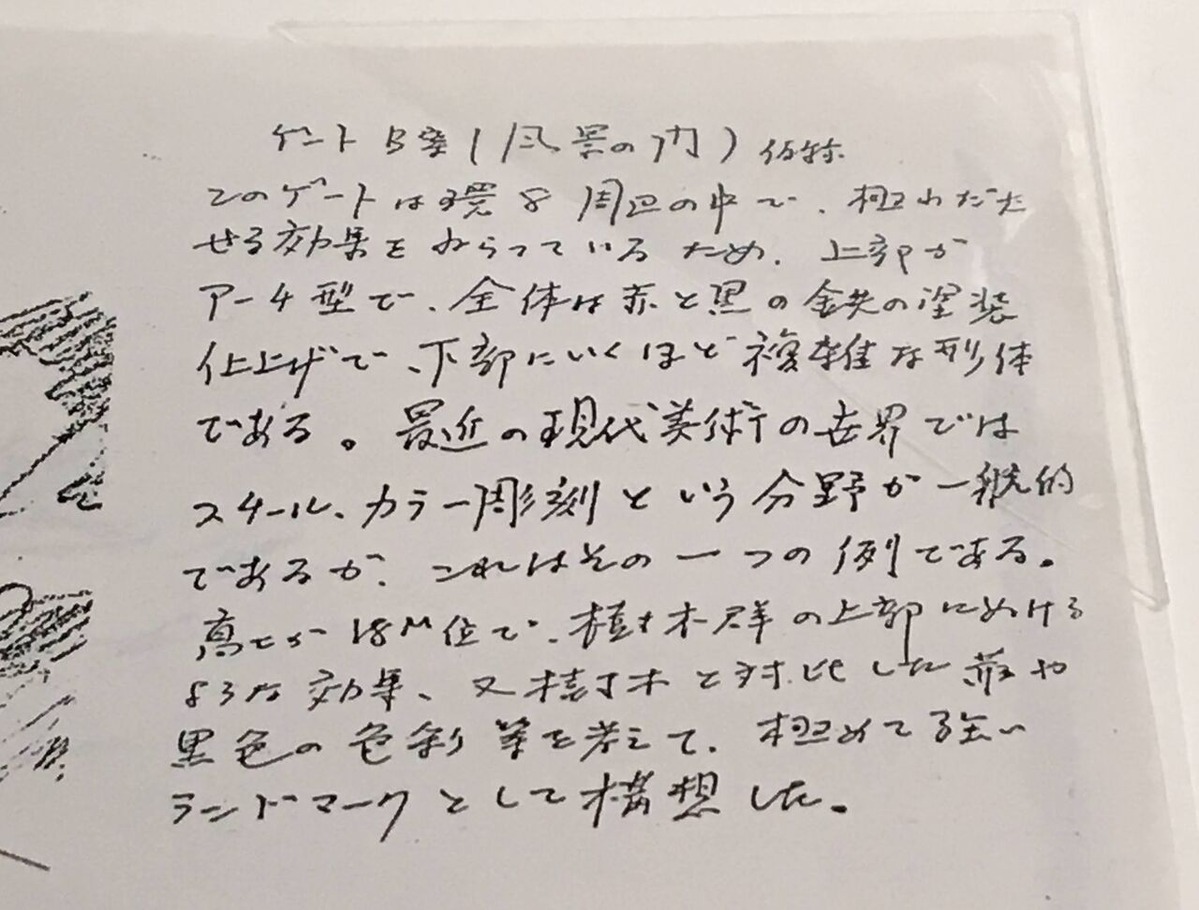 ゲート B案(風景の門)仮称
このゲートは環8周辺の中で、極わだた
せる効果をねらっているため、上部が
アーチ型で、全体は赤と黒の鉄の塗装
仕上げで、下部にいくほど複雑な形体
である。最近の現代美術の世界では
スチール、カラー彫刻という分野が一般的
であるが、これはその一つの例である。
高さが18M位で、樹木群の上部にぬける
ような効果、又樹木と対比した赤や
黒色の色彩等を考えて、極めて強い
ランドマークとして構想した。